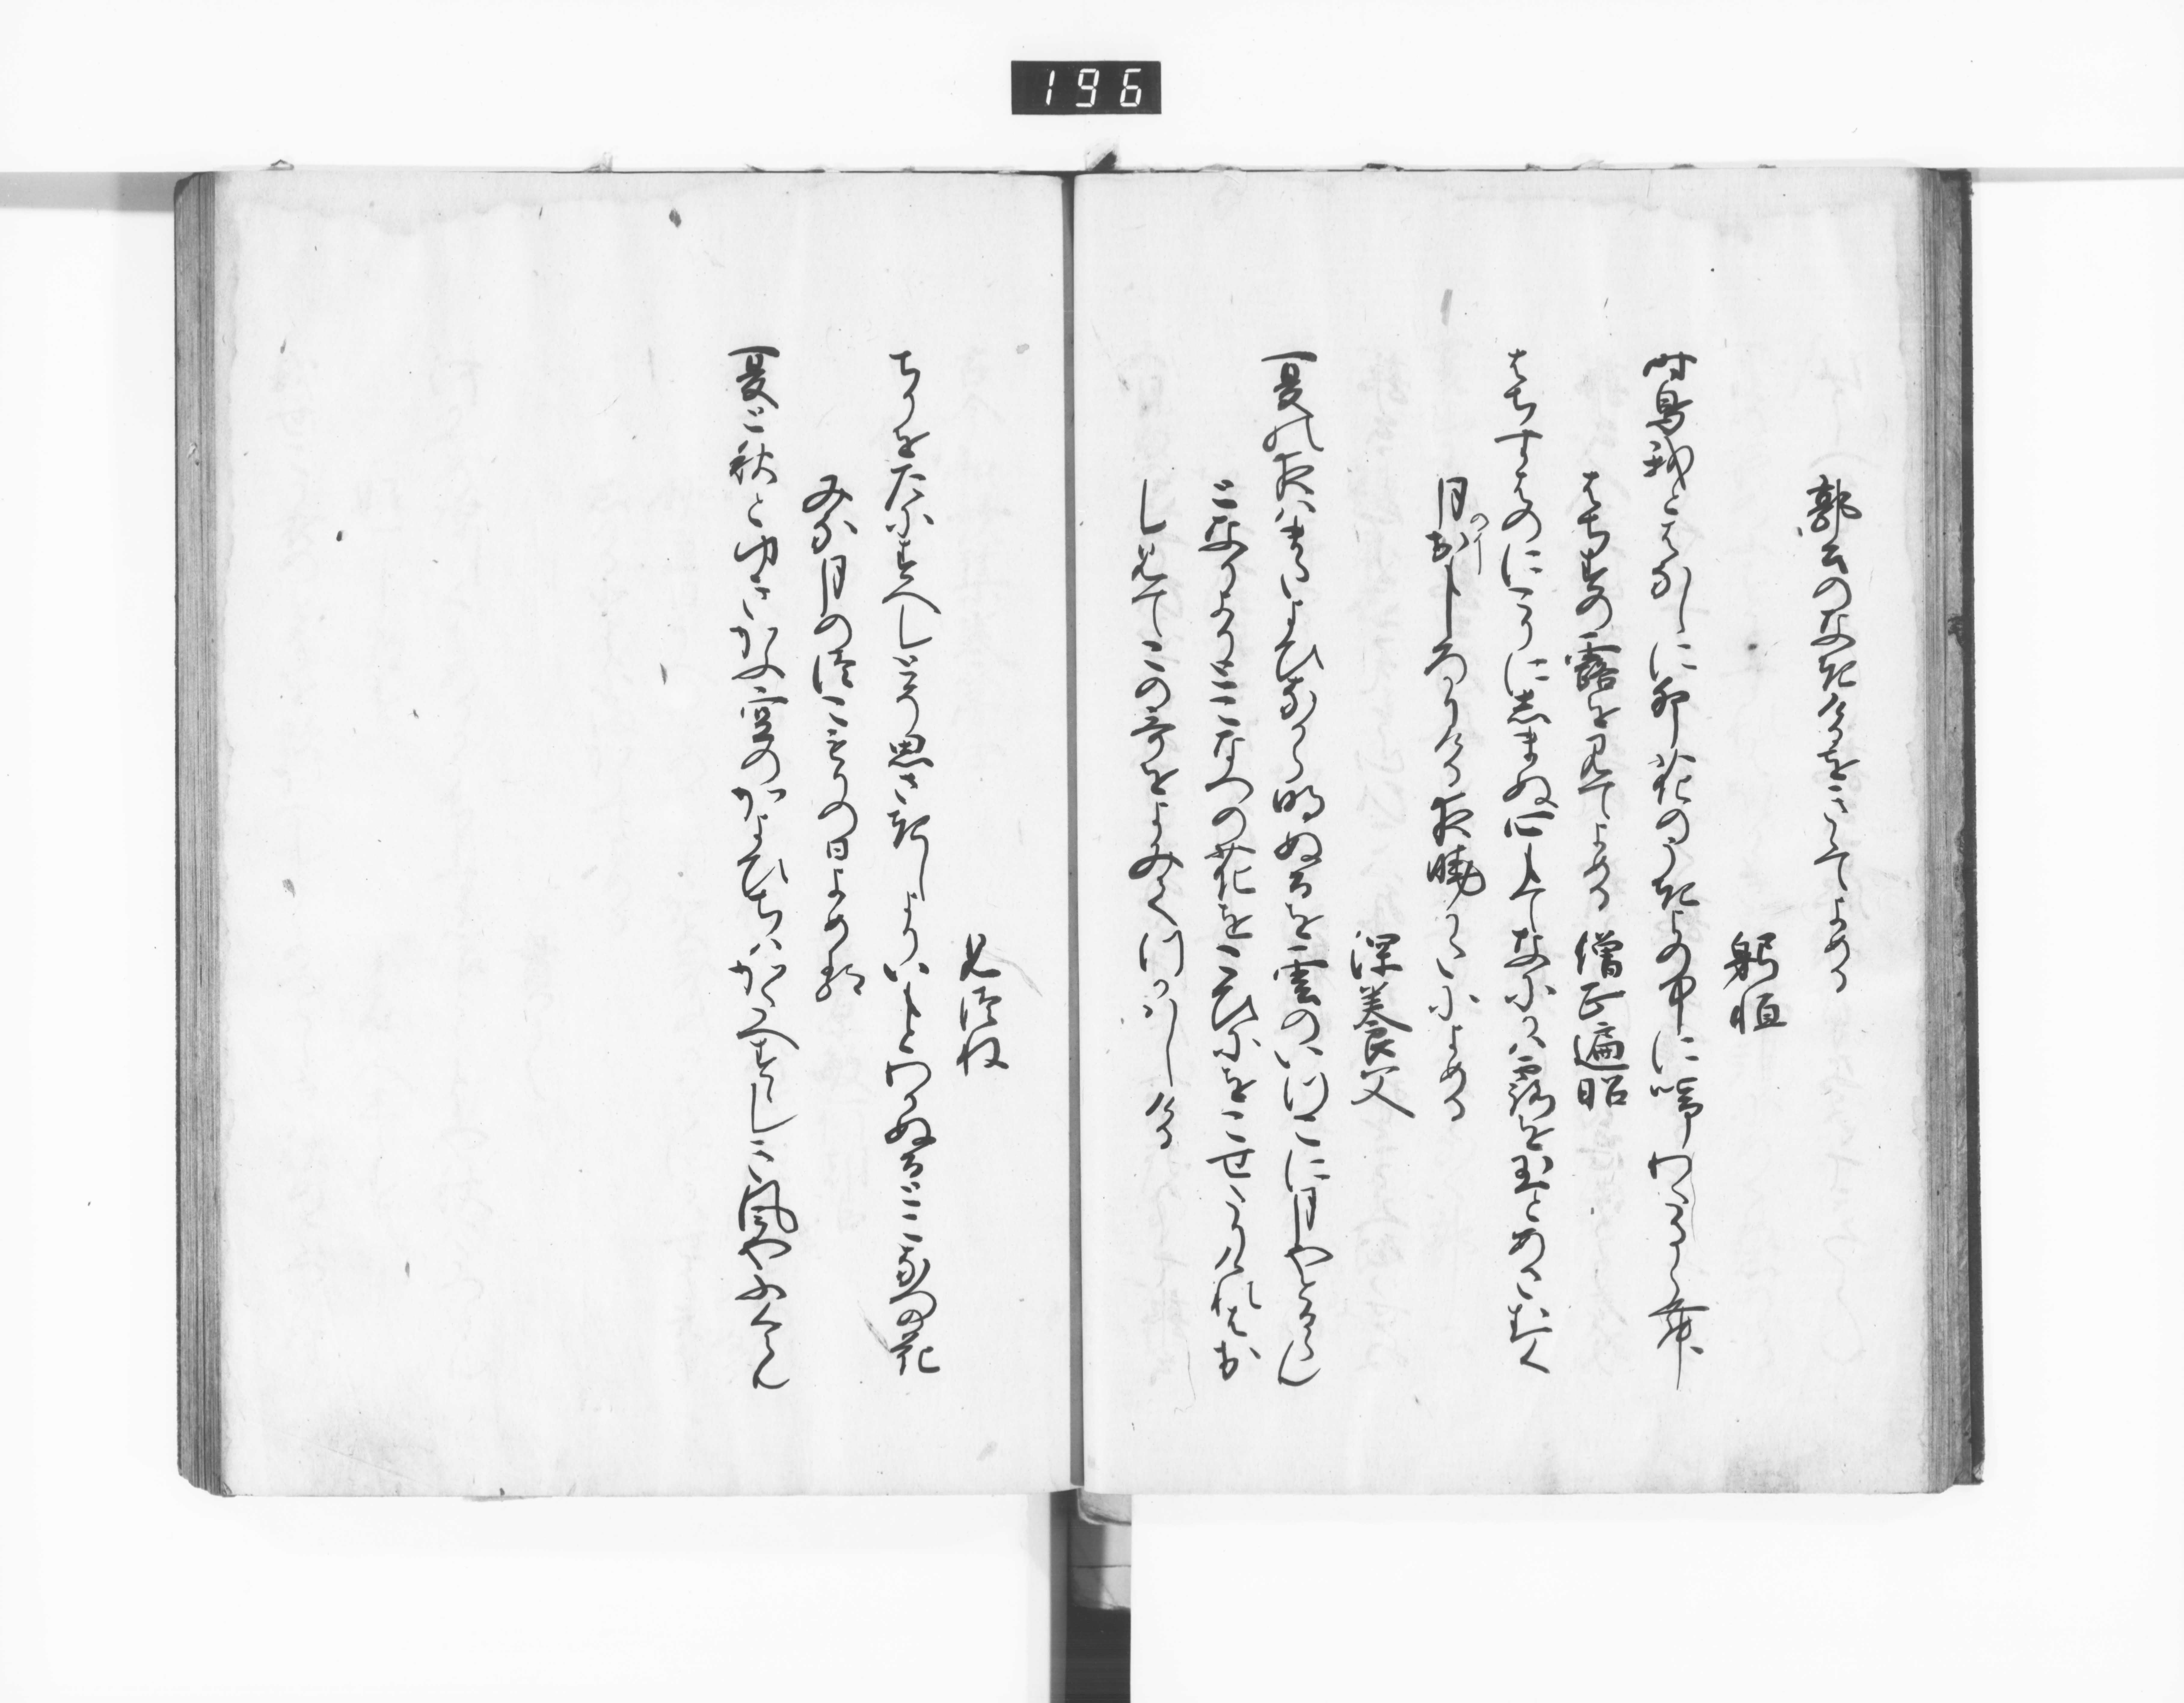 196
郭公のなきけるをきゝてよめる
躬恒
時鳥我とはなしに卯花のうき世の中に啼わたるらん
はちすの露を見てよめる 僧正遍昭
はちすはのにこりに志まぬ心もてなにかは露を玉とあさむく
月のおもしろかりける夜暁かたによめる
深養父
夏の夜はまたよひなから明ぬるを雲のいつこに月やとるらん
となりよりとこなつの花をこひにをこせたりけれはお
しみてこの哥をよみてつかはしける
凡河内
ちりをたにすへしとそ思さきしよりいもとわかぬるとこ夏の花
みな月の晦こもりの日よめる
夏と秋と行かふ空のかよひちはかたへすゝしき風やふくらん